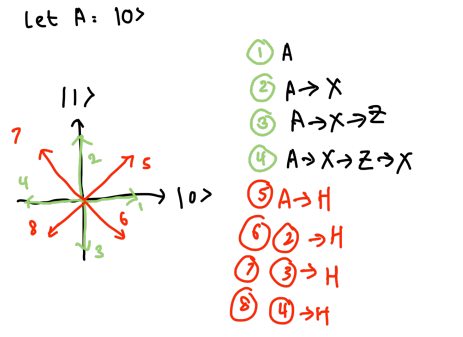 Let A: |0>
|1>
7
2
5
4
1
|0>
8
6
3
① A
② A→X
③ A→X→Z
④ A→X→Z→X
⑤ A→H
⑥ ② →H
⑦ ③→H
⑧ ④→H